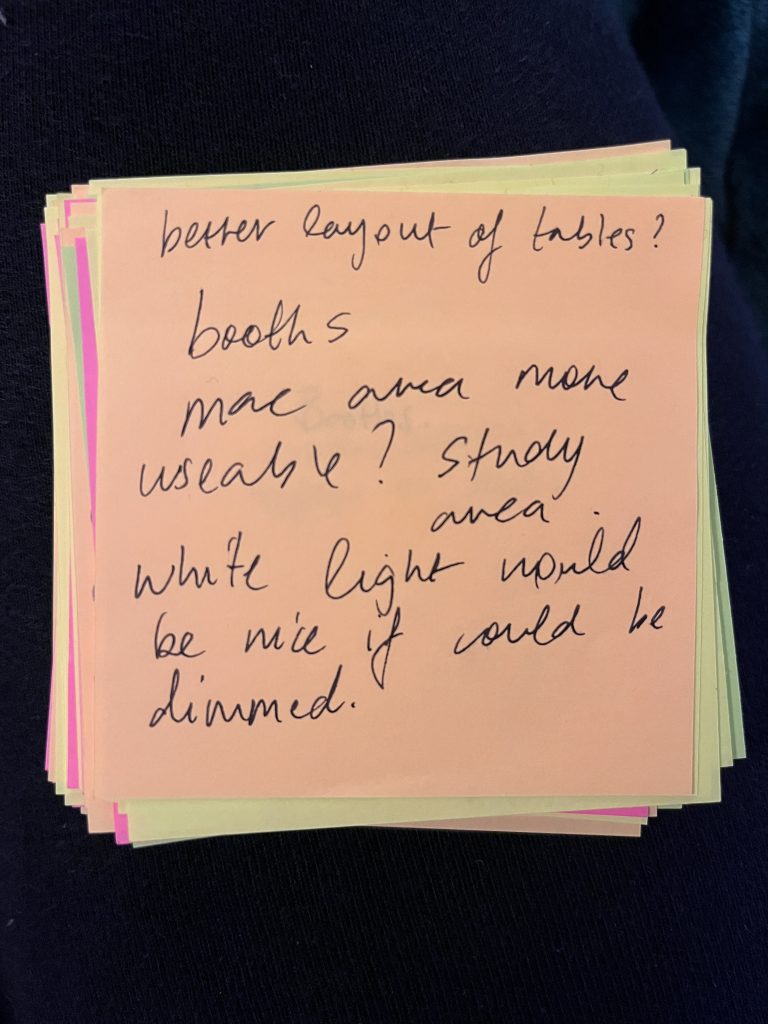 better layout of tables?
booths
mac area more
useable? Study
area.
white light would
be nice if could be
dimmed.